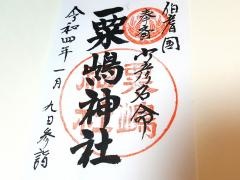 伯耆國
奉拝 少彦名命
粟嶋神社
令和四年一月九日参詣
粟嶋神社